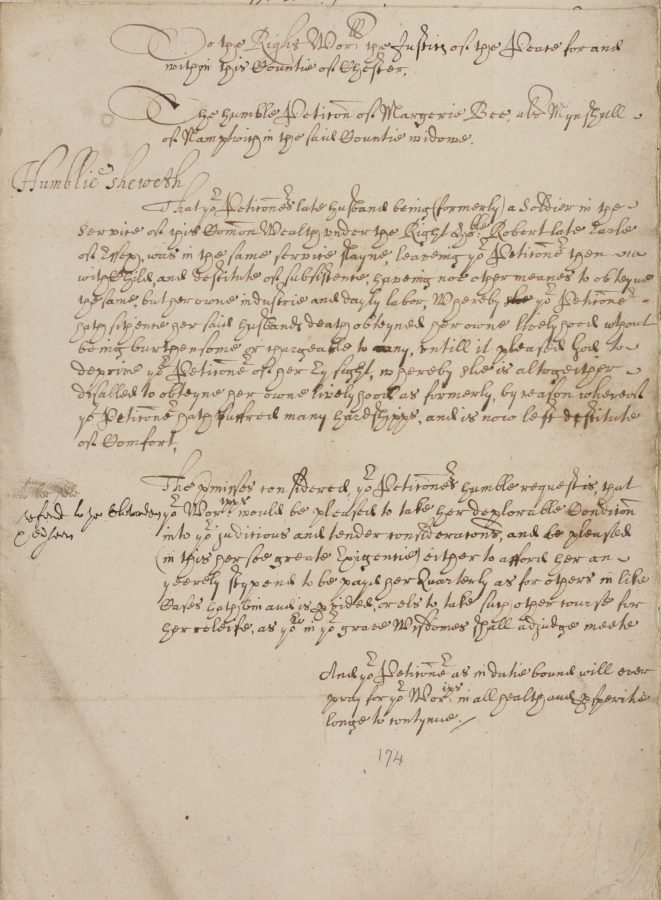 To the Right Wor:ll the Justices of the Peace for and
within this Countie of Chester.
The humble Peticon of Margerie Bee, als Mynshull
of Namptwich in the said Countie widowe.
Humblie sheweth
That yor Peticonrs late husband being (formerly) a Soldier in the
service of this Comon Wealth under the Right Hoble Robert late Earle
of Essex, was in the same service slayne, leaveing yor Peticonr then
with Child, and destitute of subsistence, haveing noe other means to obteyne
the same, but her owne industrie and dayly labor, Whereby yor Peticonr
hath sithence her said husbands death obteyned her owne livelyhood wthout
being burthensome or chargeable to any, untill it pleased God to
deprive yor Peticonr of her Ey sight, whereby shee is altogeither
disabled to obteyne her owne livelyhood as formerly, by reason whereof
yor Peticonr hath suffred many hardshipps, and is now left destitute
of Comfort.
The pmisses considered, yor Peticonrs humble request is, that
yor Worpps would be pleased to take her deplorable Condicon
into yor judicious and tender consideracons, and be pleased
(in this her soe greate Exigencie) either to afford her an
yeerely stypend to be payd her Quarterly as for others in like
Cases hath bin and is pvided, or els to take such other course for
her releife, as to yow in yor grave Wisdomes shall adjudge meete
And yor Peticonr as in dutie bound will ever
pray for yor Worpps in all health and psperitie
longe to contynue.
refered to ye
174